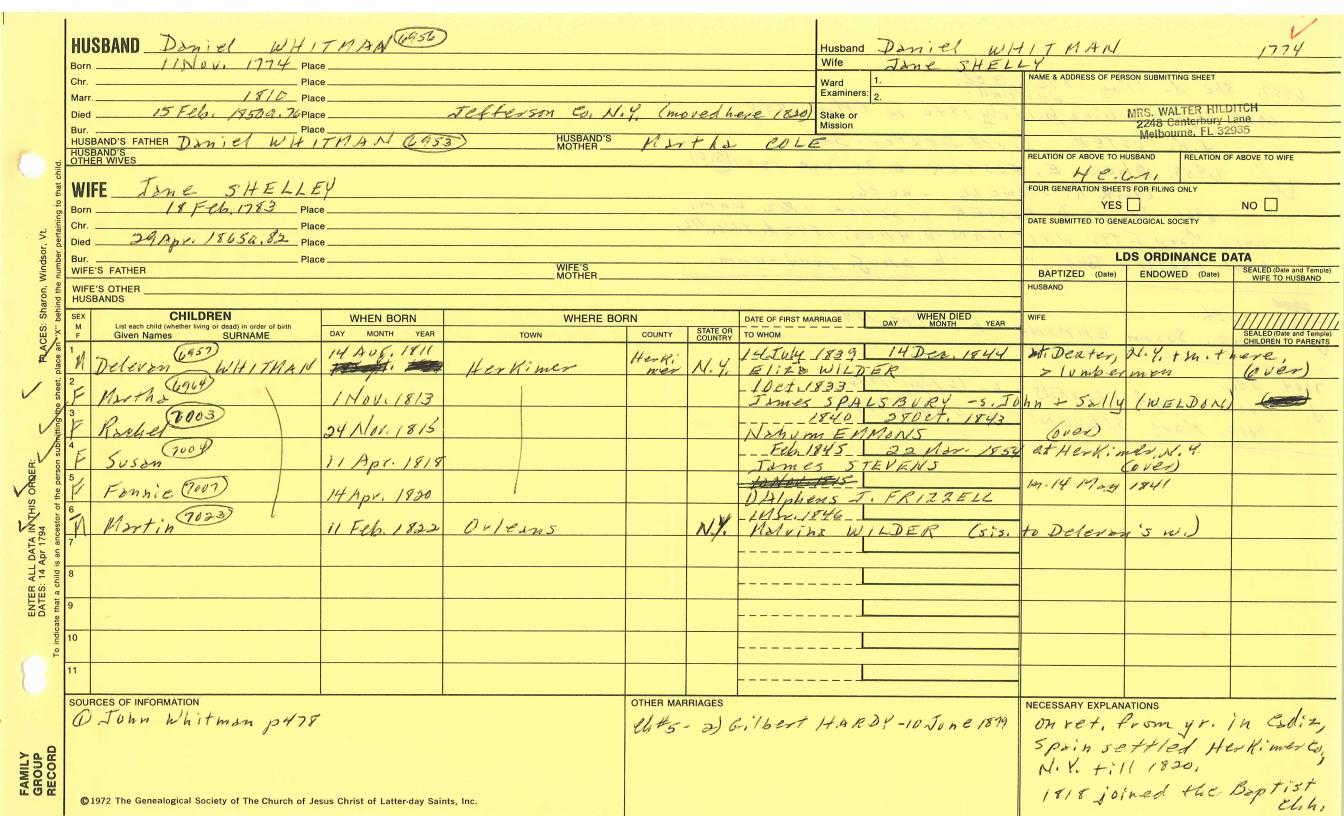 HUSBAND Daniel WHITMAN 6956
Born 11 Nov. 1774 Place
Chr. Place
Marr. 1810 Place
Died 15 Feb. 1850 a. 76 Place Jefferson Co. N.Y. (moved here 1820)
Bur. Place
HUSBAND'S FATHER Daniel WHITMAN 6953 HUSBAND'S MOTHER Martha COLE
HUSBAND'S OTHER WIVES
WIFE Jane SHELLEY
Born 18 Feb. 1783 Place
Chr. Place
Died 29 Apr. 1865 a. 82 Place
Bur. Place
WIFE'S FATHER WIFE'S MOTHER
WIFE'S OTHER HUSBANDS
Husband Daniel WHITMAN 1774
Wife Jane SHELLY
Ward Examiners: 1.
2.
Stake or Mission
NAME & ADDRESS OF PERSON SUBMITTING SHEET
MRS. WALTER HILDITCH
2248 Canterbury Lane
Melbourne, FL 32935
RELATION OF ABOVE TO HUSBAND RELATION OF ABOVE TO WIFE
FOUR GENERATION SHEETS FOR FILING ONLY
YES NO
DATE SUBMITTED TO GENEALOGICAL SOCIETY
LDS ORDINANCE DATA
BAPTIZED (Date) ENDOWED (Date) SEALED (Date and Temple) WIFE TO HUSBAND
HUSBAND
WIFE
SEALED (Date and Temple) CHILDREN TO PARENTS
SEX M F CHILDREN
List each child (whether living or dead) in order of birth
Given Names SURNAME
WHEN BORN
DAY MONTH YEAR
WHERE BORN
TOWN COUNTY STATE OR COUNTRY
DATE OF FIRST MARRIAGE
TO WHOM
WHEN DIED
DAY MONTH YEAR
1 M Delevan 6957 WHITMAN 14 Aug. 1811 Herkimer Herkimer N.Y. 14 July 1839 14 Dec. 1844 at Dexter, N.Y. + m. there,
Eliza WILDER a lumberman (over)
2 F Martha 6964 1 Nov. 1813 1 Oct. 1833
James SPALSBURY - s. John + Sally (WELDON)
3 F Rachel 7003 24 Nov. 1815 1840 28 Oct. 1843
Nahum EMMONS (over)
4 F Susan 7004 11 Apr. 1818 Feb. 1845 22 Mar. 1854 at Herkimer, N.Y.
James STEVENS (over)
5 F Fannie 7007 14 Apr. 1820 m. 14 May 1841
DAlphens J. FRIZZELL
6 M Martin 7023 11 Feb. 1822 Orleans N.Y. 1 Mar. 1846
Malvina WILDER (sis. to Delevan's w.)
7
8
9
10
11
SOURCES OF INFORMATION
① John Whitman p478
OTHER MARRIAGES
Ch#5 - 2) Gilbert HARDY - 10 June 1879
NECESSARY EXPLANATIONS
on ret. from yr. in Cadiz,
Spain settled Herkimer Co,
N.Y. till 1820.
1818 joined the Baptist
Chh.
©1972 The Genealogical Society of The Church of Jesus Christ of Latter-day Saints, Inc.
FAMILY GROUP RECORD
ENTER ALL DATA IN THIS ORDER:
DATES: 14 Apr 1794
PLACES: Sharon, Windsor, Vt.
To indicate that a child is an ancestor of the person submitting the sheet, place an "X" behind the number pertaining to that child.